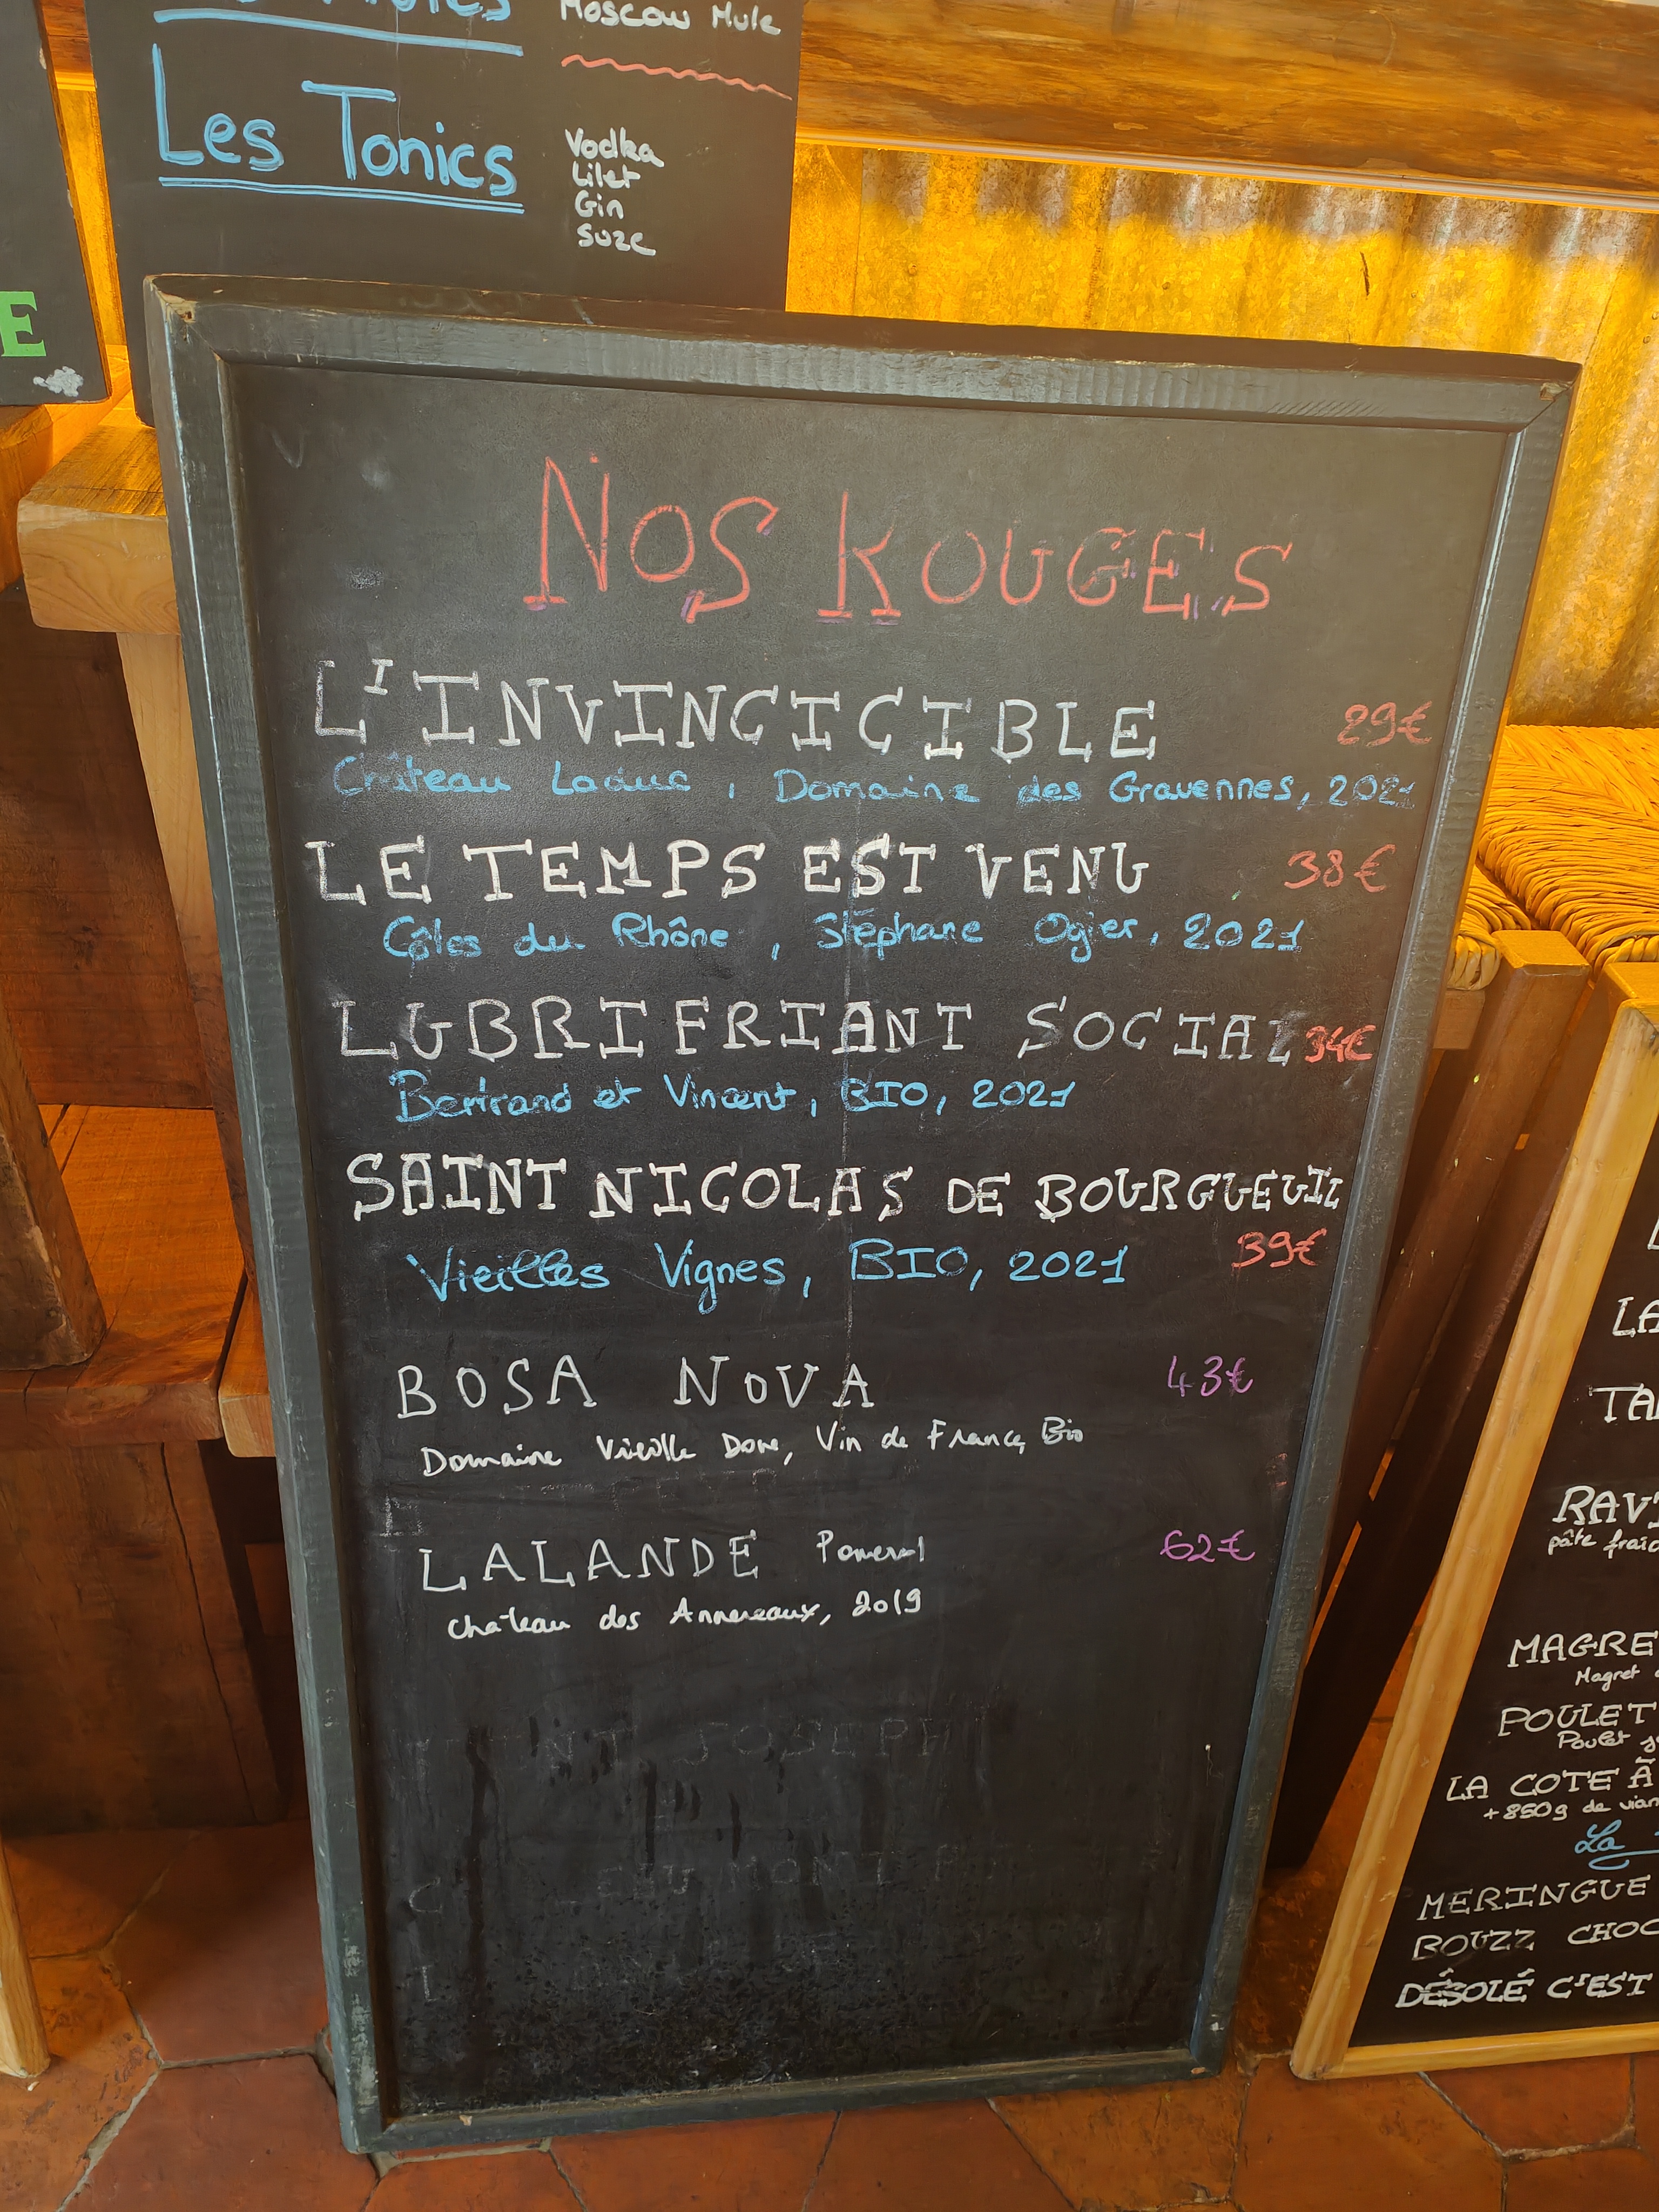 Moscow Mule
Les Tonics
Vodka
Lilet
Gin
Suze
E
NOS ROUGES
L'INVINCICIBLE 29€
Château Laduc, Domaine des Gravennes, 2021
LE TEMPS EST VENU 38€
Côtes du Rhône, Stéphane Ogier, 2021
LUBRIFRIANT SOCIAL 34€
Bertrand et Vincent, BIO, 2021
SAINT NICOLAS DE BOURGUEUIL
Vieilles Vignes, BIO, 2021 39€
BOSA NOVA 43€
Domaine Vieille Dove, Vin de France, Bio
LALANDE Pomerol 62€
Château des Annereaux, 2019
LA
TA
RAV
pâte fraic
MAGRE
Magret
POULET
Poulet
LA COTE À
+850g de vian
La
MERINGUE
BOUZZ CHOC
DÉSOLÉ C'EST